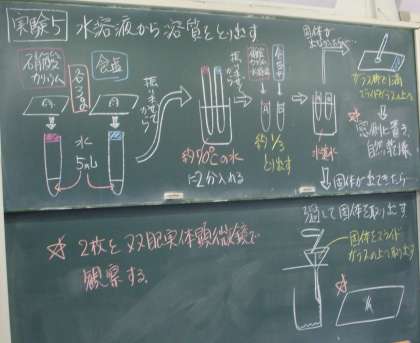 実験5 水溶液から溶質をとり出す
硝酸
カリウム
食塩
水
5mL
振りまぜて
から
約70℃の水
に2分入れる
振りまぜて
から
約1/3
とり出す
固体が
氷水
ガラス棒で1滴
スライドガラスの上へ
窓側に置き
自然乾燥
固体が出てきたら
ろ過して固体を取り出す
固体をスライド
ガラスの上に取り出す
☆ 2枚を双眼実体顕微鏡で
観察する。